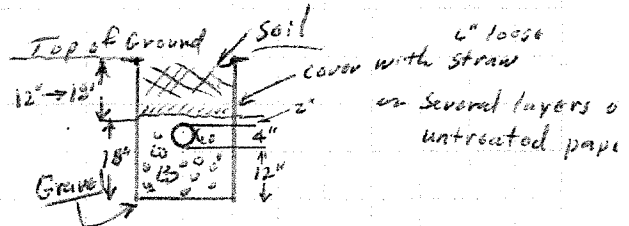 Top of Ground
Soil
4" loose
cover with straw
12" → 18"
2"
or Several layers o
untreated pape
4"
18"
12"
Gravel